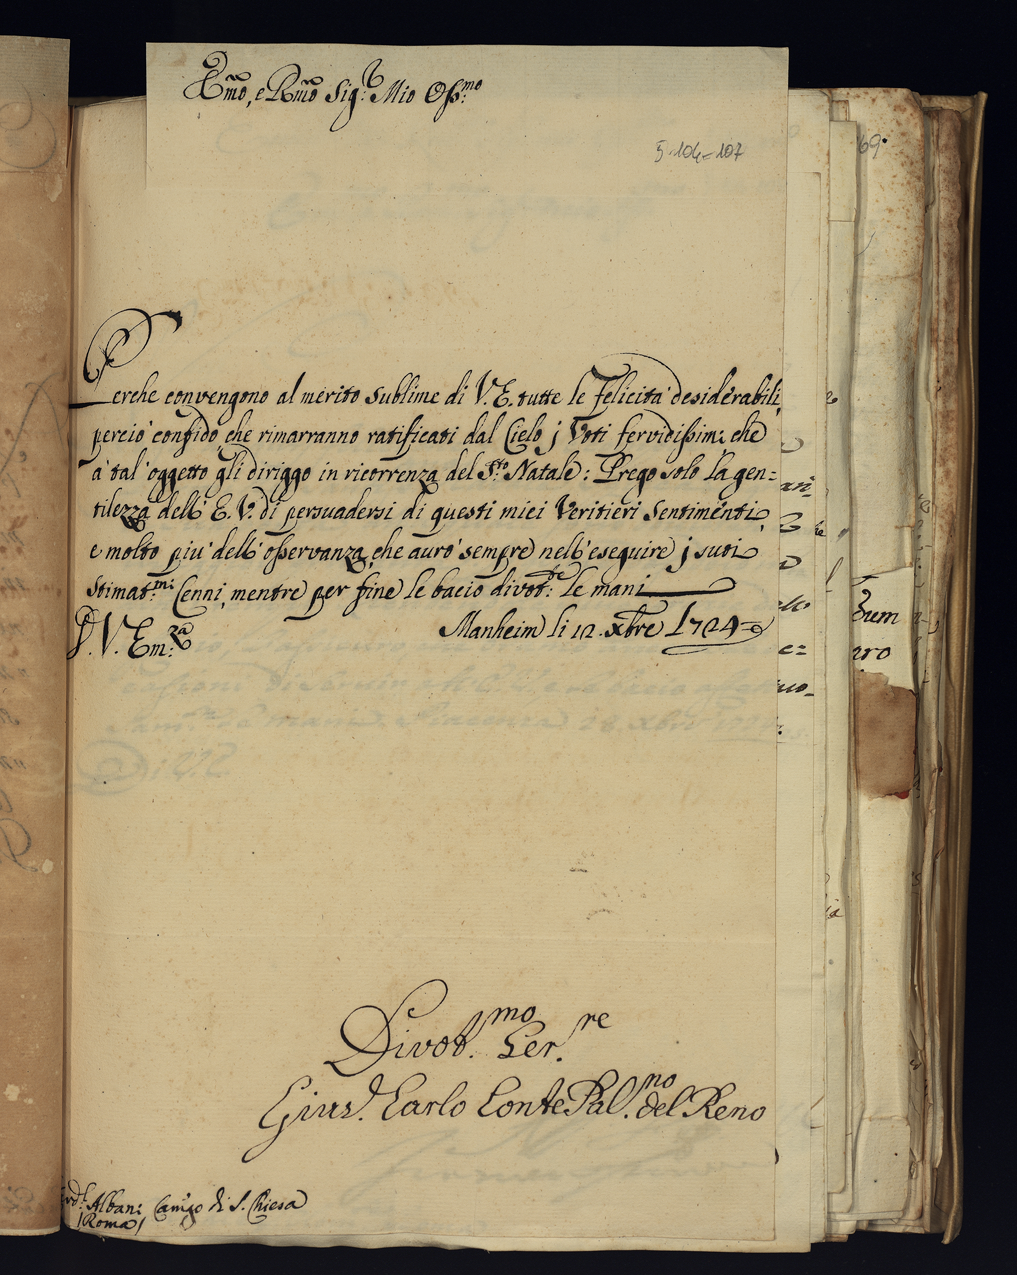 Em̃o, e Rm̃o Sig.r Mio Oss.mo
5-104-107
69.
Perche convengono al merito sublime di V.E. tutte le Felicità desiderabili,
perciò confido che rimarranno ratificati dal Cielo j Voti fervidissimi che
à tal' oggetto gli diriggo in ricorrenza del S.to Natale: Prego solo la gen=
tilezza dell' E.V. di persuadersi di questi miei Veritieri Sentimenti,
e molto più dell' osservanza, che aurò sempre nell' eseguire j suoi
Stimat.mi Cenni, mentre per fine le bacio divot.te le mani
D. V. Em.za
Manheim li 12. xbre 1724
Divot.mo Ser.re
Gius. Carlo Conte Pal.no del Reno
Albani Cam̃go di S. Chiesa
/Roma/